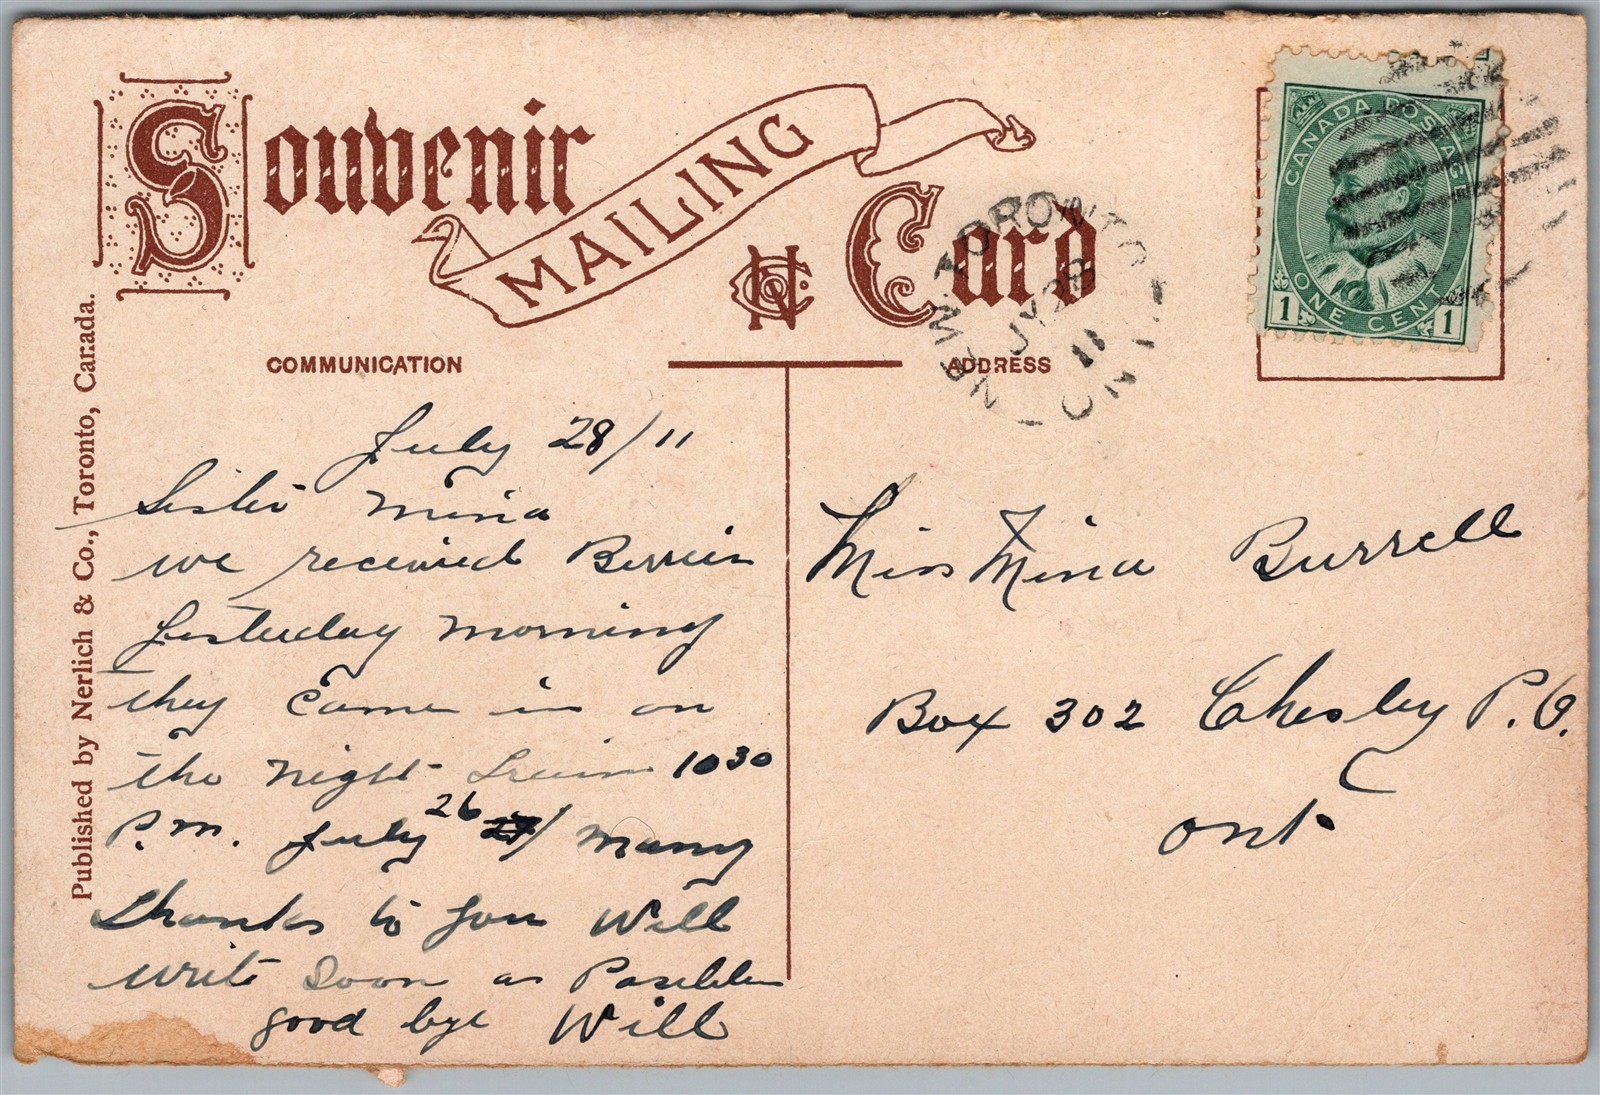 Souvenir MAILING Card
COMMUNICATION
ADDRESS
Published by Nerlich & Co., Toronto, Canada.
CANADA POSTAGE
ONE CENT
1 1
TORONTO
JY 28
11
ONT
July 28/11
Sister Mina
we received Berries
yesterday morning
they came in on
the night train 1030
P.M. July 26 27/ Many
thanks to you Will
write soon as Possible
good bye Will
Miss Mina Burrell
Box 302 Chesley P.O.
Ont